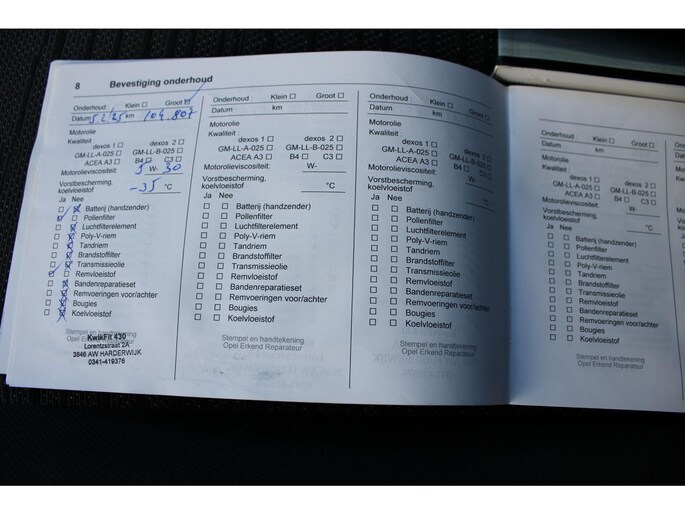 8 Bevestiging onderhoud
Onderhoud : Klein Groot
Datum 5.2.25 km 104.807
Motorolie
Kwaliteit :
dexos 1 dexos 2
GM-LL-A-025 GM-LL-B-025
ACEA A3 B4 C3
Motorolieviscositeit: 5 W- 30
Vorstbescherming,
koelvloeistof -35 °C
Ja Nee
Batterij (handzender)
Pollenfilter
Luchtfilterelement
Poly-V-riem
Tandriem
Brandstoffilter
Transmissieolie
Remvloeistof
Bandenreparatieset
Remvoeringen voor/achter
Bougies
Koelvloeistof
Stempel en handtekening
KwikFit 430
Lorentzstraat 2A
3846 AW HARDERWIJK
0341-419376
Onderhoud : Klein Groot
Datum km
Motorolie
Kwaliteit :
dexos 1 dexos 2
GM-LL-A-025 GM-LL-B-025
ACEA A3 B4 C3
Motorolieviscositeit: W-
Vorstbescherming,
koelvloeistof °C
Ja Nee
Batterij (handzender)
Pollenfilter
Luchtfilterelement
Poly-V-riem
Tandriem
Brandstoffilter
Transmissieolie
Remvloeistof
Bandenreparatieset
Remvoeringen voor/achter
Bougies
Koelvloeistof
Stempel en handtekening
Opel Erkend Reparateur
Onderhoud : Klein Groot
Datum km
Motorolie
Kwaliteit :
dexos 1 dexos 2
GM-LL-A-025 GM-LL-B-025
ACEA A3 B4 C3
Motorolieviscositeit: W-
Vorstbescherming,
koelvloeistof °C
Ja Nee
Batterij (handzender)
Pollenfilter
Luchtfilterelement
Poly-V-riem
Tandriem
Brandstoffilter
Transmissieolie
Remvloeistof
Bandenreparatieset
Remvoeringen voor/achter
Bougies
Koelvloeistof
Stempel en handtekening
Opel Erkend Reparateur
Onderhoud : Klein Groot
Datum km
Motorolie
Kwaliteit :
dexos 1 dexos 2
GM-LL-A-025 GM-LL-B-025
ACEA A3 B4 C3
Motorolieviscositeit: W-
Vorstbescherming,
koelvloeistof °C
Ja Nee
Batterij (handzender)
Pollenfilter
Luchtfilterelement
Poly-V-riem
Tandriem
Brandstoffilter
Transmissieolie
Remvloeistof
Bandenreparatieset
Remvoeringen voor/achter
Bougies
Koelvloeistof
Stempel en handtekening
Opel Erkend Reparateur